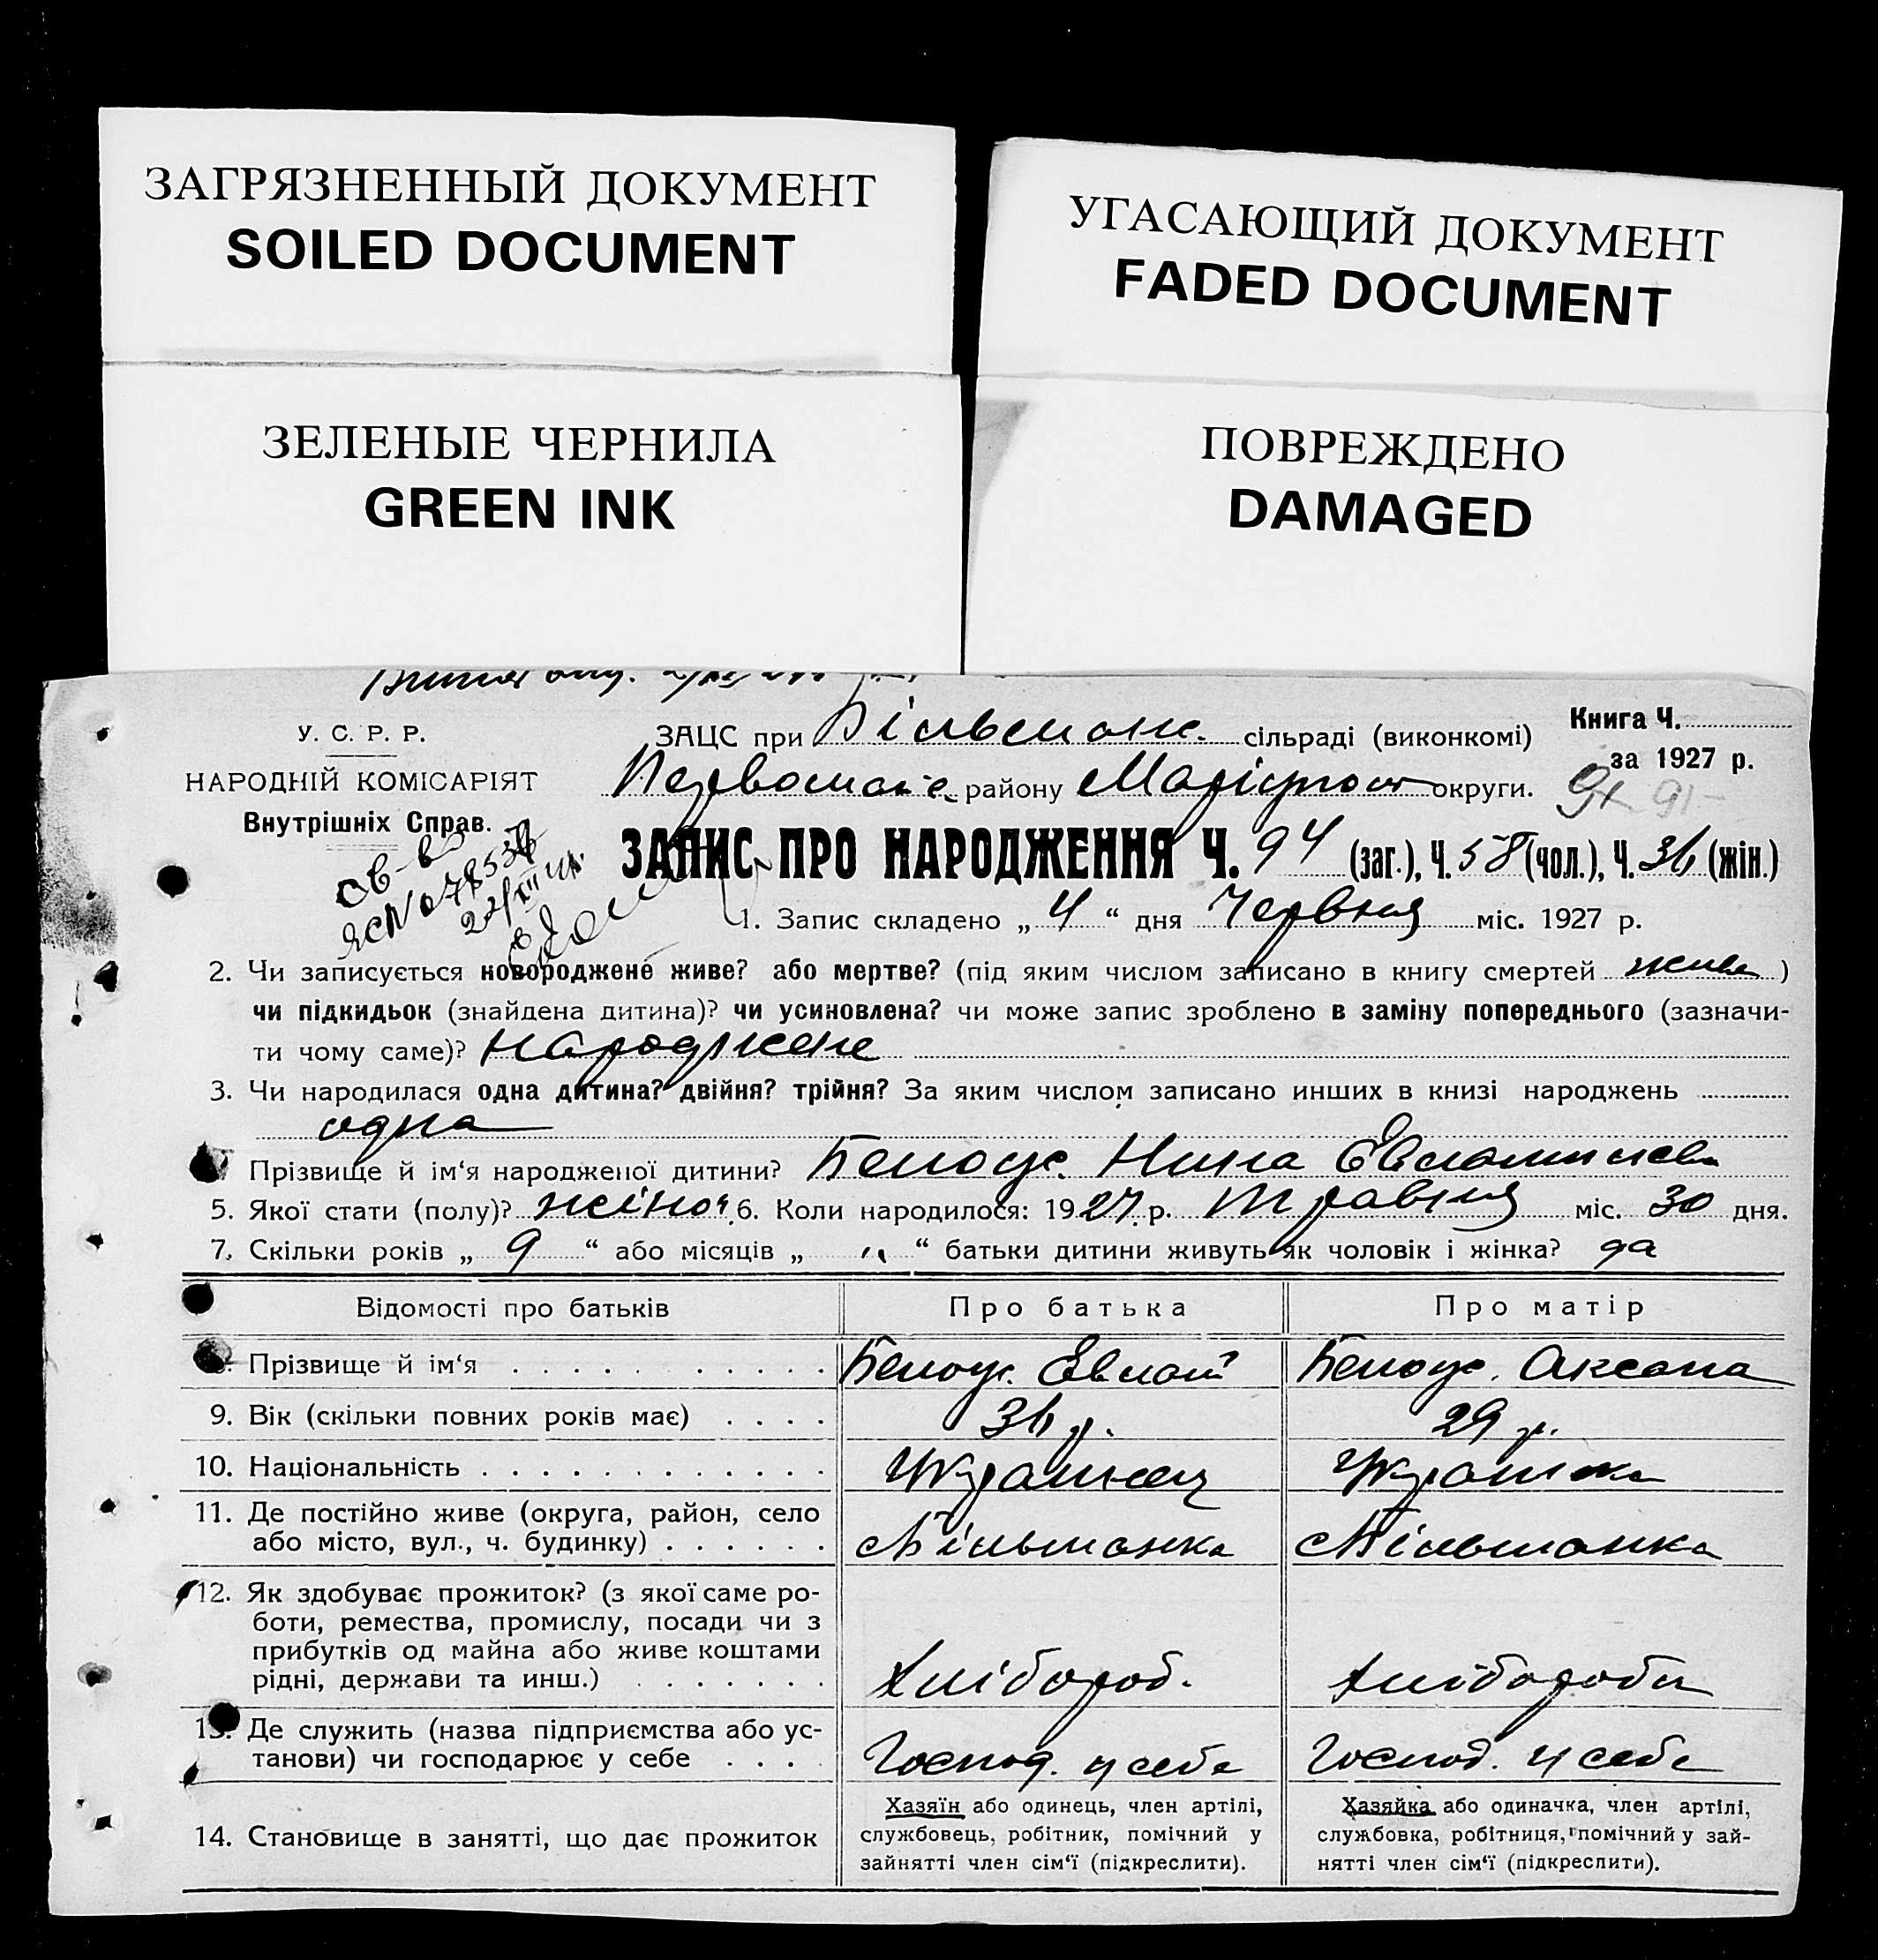 ЗАГРЯЗНЕННЫЙ ДОКУМЕНТ
SOILED DOCUMENT
УГАСАЮЩИЙ ДОКУМЕНТ
FADED DOCUMENT
ЗЕЛЕНЫЕ ЧЕРНИЛА
GREEN INK
ПОВРЕЖДЕНО
DAMAGED
У. С. Р. Р.
НАРОДНІЙ КОМІСАРІЯТ
Внутрішніх Справ.
ЗАЦС при сільраді (виконкомі)
району Маріупол округи.
Книга Ч.
за 1927 р.
91
ЗАПИС ПРО НАРОДЖЕННЯ Ч. 94 (заг.), Ч. 58 (чол.), Ч. 36 (жін.)
1. Запис складено „ 4 “ дня Червня міс. 1927 р.
2. Чи записується новороджене живе? або мертве? (під яким числом записано в книгу смертей живе )
чи підкидьок (знайдена дитина)? чи усиновлена? чи може запис зроблено в заміну попереднього (зазначи-
ти чому саме)? Народжене
3. Чи народилася одна дитина? двійня? трійня? За яким числом записано инших в книзі народжень
одна
Прізвище й ім‘я народженої дитини? Белоус. Нина
5. Якої стати (полу)? жіноч. 6. Коли народилося: 1927 р. Травня міс. 30 дня.
7. Скільки років „ 9 “ або місяців „ " “ батьки дитини живуть як чоловік і жінка? да
Відомості про батьків
Про батька
Про матір
Прізвище й ім‘я
Белоус.
Белоус. Аксана
9. Вік (скільки повних років має)
36 р.
29 р.
10. Національність
Українец
Українка
11. Де постійно живе (округа, район, село
або місто, вул., ч. будинку)
12. Як здобуває прожиток? (з якої саме ро-
боти, ремества, промислу, посади чи з
прибутків од майна або живе коштами
рідні, держави та инш.)
Хлібороб.
Хлібороби
13. Де служить (назва підприємства або ус-
танови) чи господарює у себе
Господ. у себе
Господ. у себе
14. Становище в занятті, що дає прожиток
Хазяїн або одинець, член артілі,
службовець, робітник, помічний у
зайнятті член сім‘ї (підкреслити).
Хазяйка або одиначка, член артілі,
службовка, робітниця, помічний у зай-
нятті член сім‘ї (підкреслити).